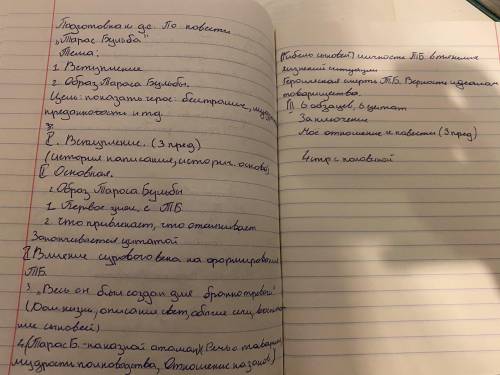 Подготовка к д.с. По повести
„Тарас Бульба"
Тема:
1. Вступление
2. Образ Тараса Бульбы.
Цель: показать героя: бесстрашие, мудр
преданность и тд.
I. Вступление. (3 пред)
(история написания, историч. основа)
II Основная.
2 Образ Тараса Бульбы
1. Первое знак. с ТБ
2. Что привлекает, что отталкивает
Заканчивается цитатой
Влияние сурового века на формирование
ТБ.
3 „Весь он был создан для бранной тревоги"
(Дом. жизнь, описание свет,
сыновей)
4. (Тарас Б. - наказной атаман) (Речь о товарищ
мудрость полководства, Отношение казаков)
(Гибель сыновей) личности ТБ в тяжелые
жизненной ситуации
Героическая смерть ТБ. Верность идеалам
товарищества.
6 абзацев, 6 цитат
Заключение
Моё отношение к повести (3 пред)
4 стр с половиной